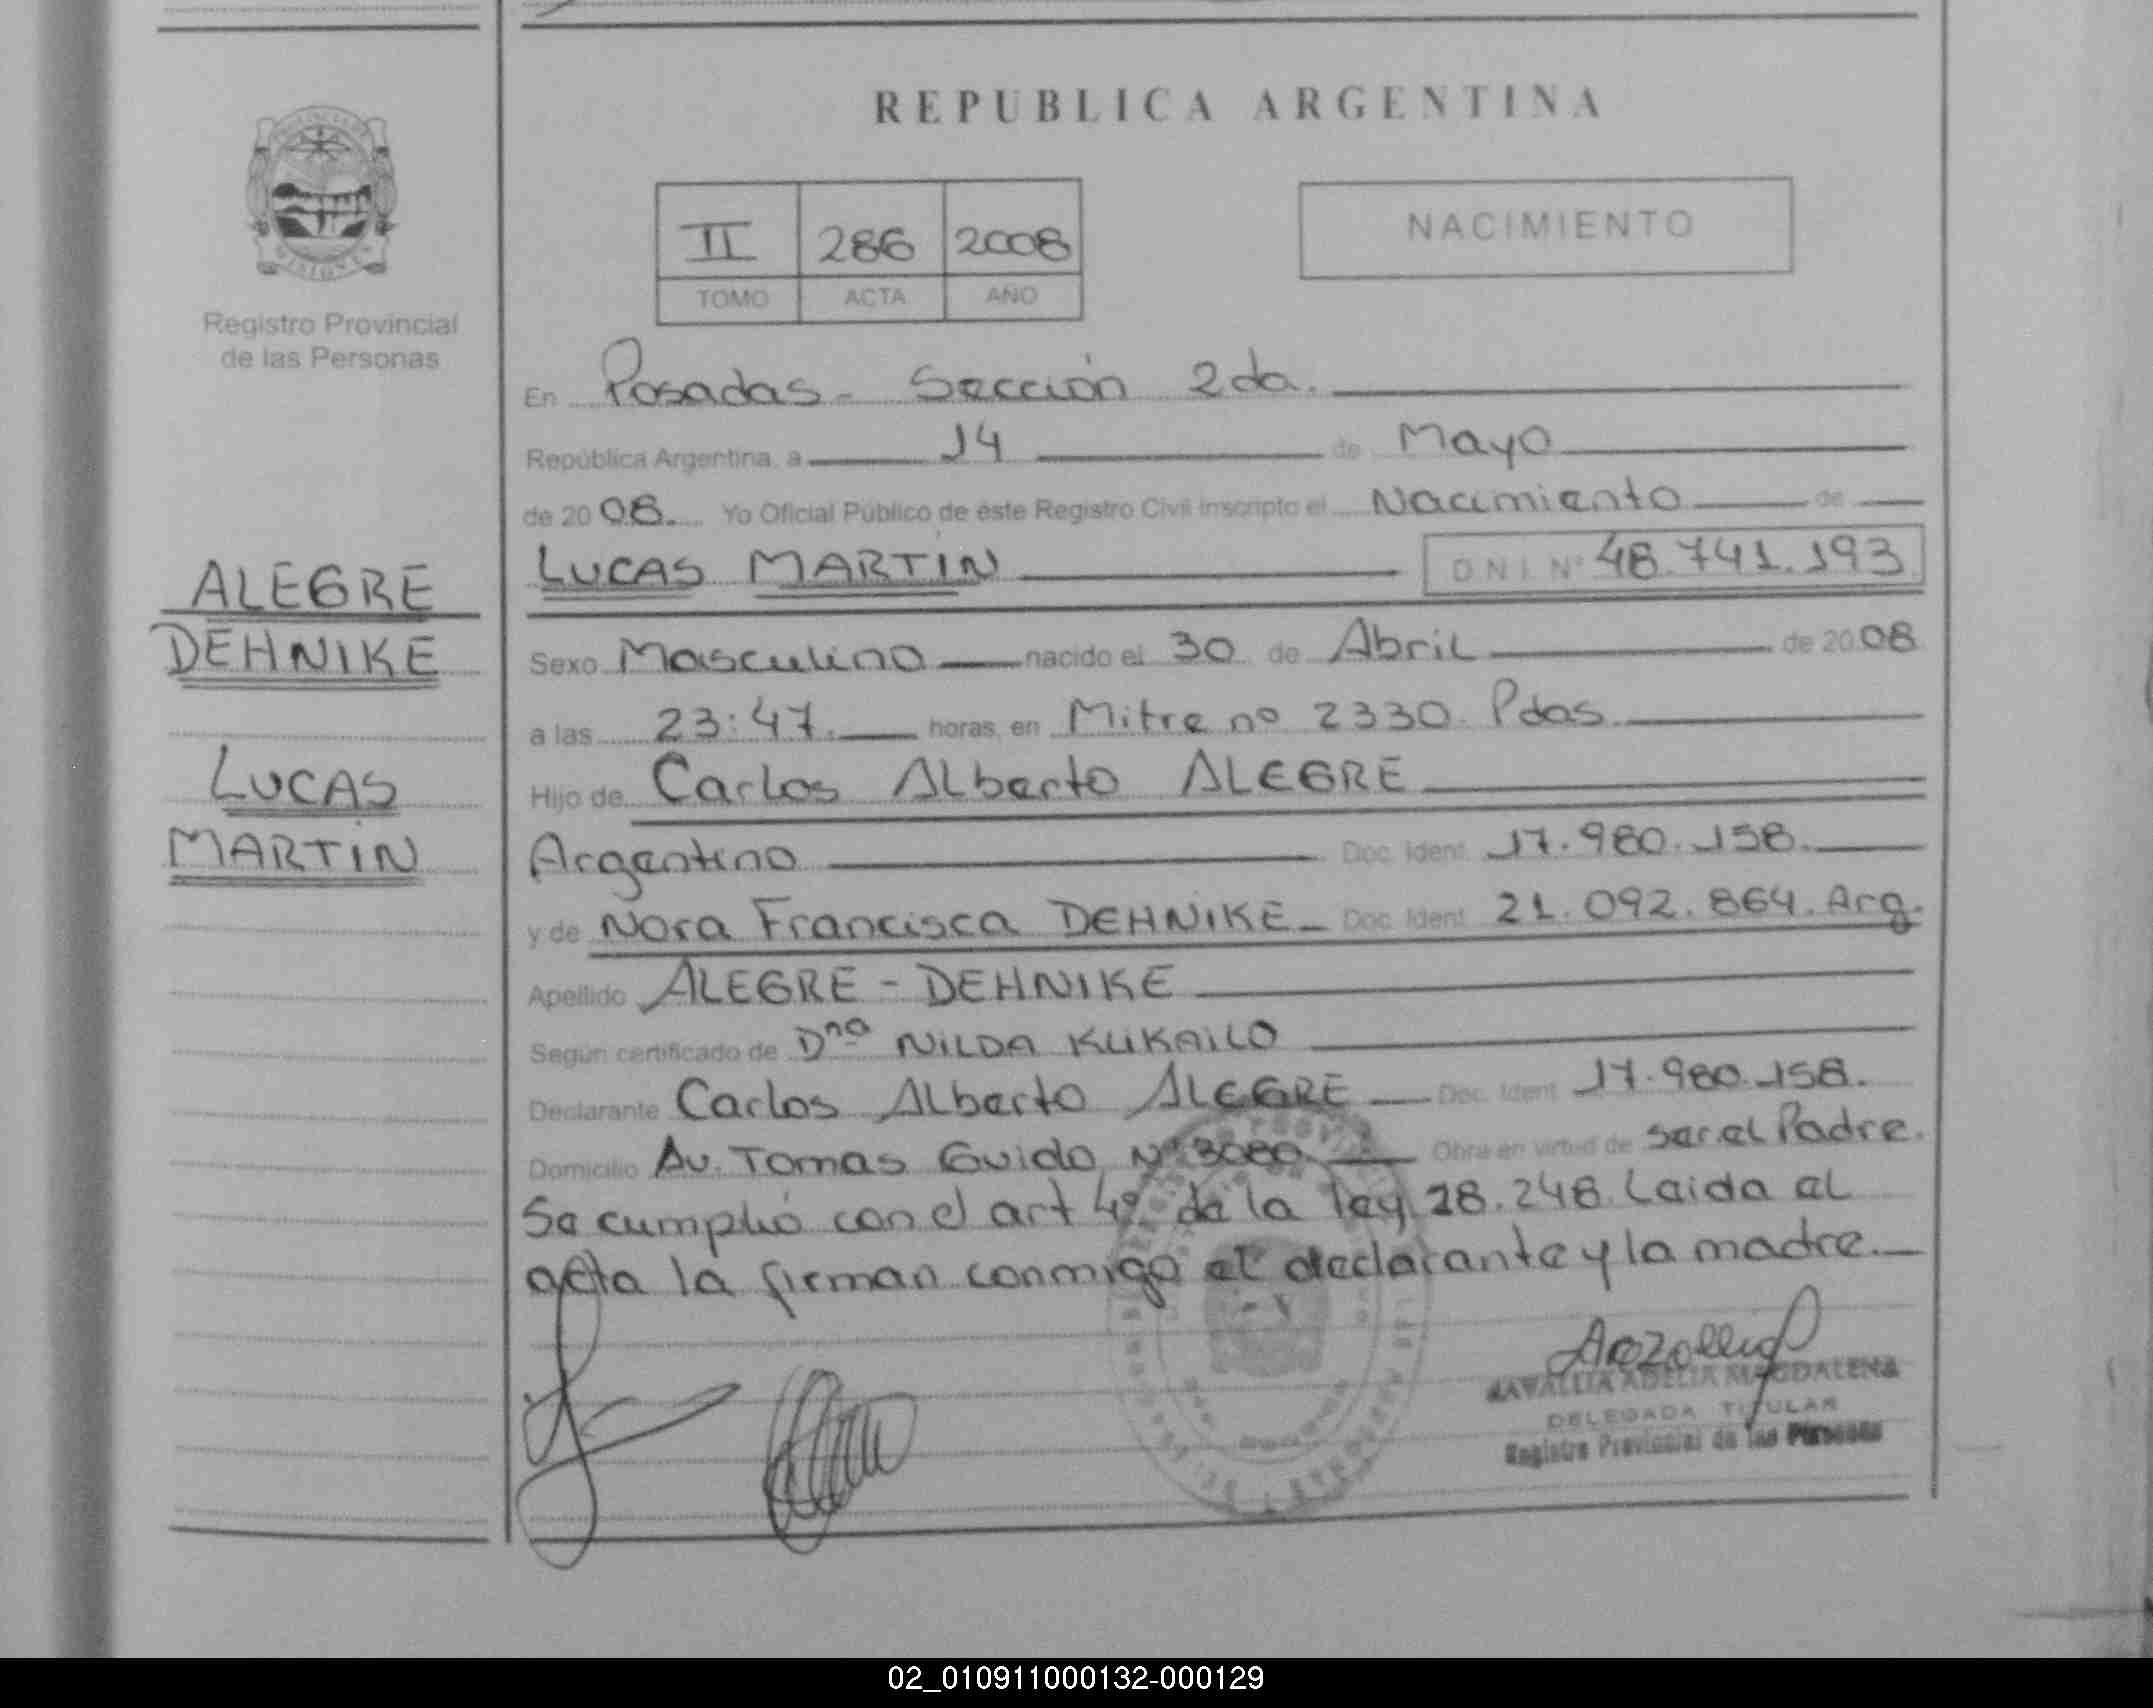 REPUBLICA ARGENTINA
II 286 2008
TOMO ACTA AÑO
NACIMIENTO
Registro Provincial
de las Personas
ALEGRE
DEHNIKE
LUCAS
MARTIN
En Posadas - Sección 2da.
República Argentina, a 14 de Mayo
de 2008. Yo Oficial Público de éste Registro Civil inscripto el Nacimiento de
LUCAS MARTIN D N I Nº 48.741.193
Sexo Masculino nacido el 30 de Abril de 2008
a las 23:47. horas, en Mitre nº 2330 Pdas
Hijo de Carlos Alberto ALEGRE
Argentino Doc. Ident. 17.980.158.
y de Nora Francisca DEHNIKE - Doc. Ident. 21.092.864. Arg.
Apellido ALEGRE - DEHNIKE
Según certificado de Dña NILDA KLIKAILO
Declarante Carlos Alberto ALEGRE Doc. Ident. 17.980.158.
Domicilio Av. Tomas Guido Nº 3080 Obra en virtud de ser el Padre.
Se cumplió con el art 4º de la ley 18.248. Leida el
acta la firman conmigo el declarante y la madre.
ADELIA MAGDALENA
DELEGADA TITULAR
Registro Provincial de las Personas
02_010911000132-000129